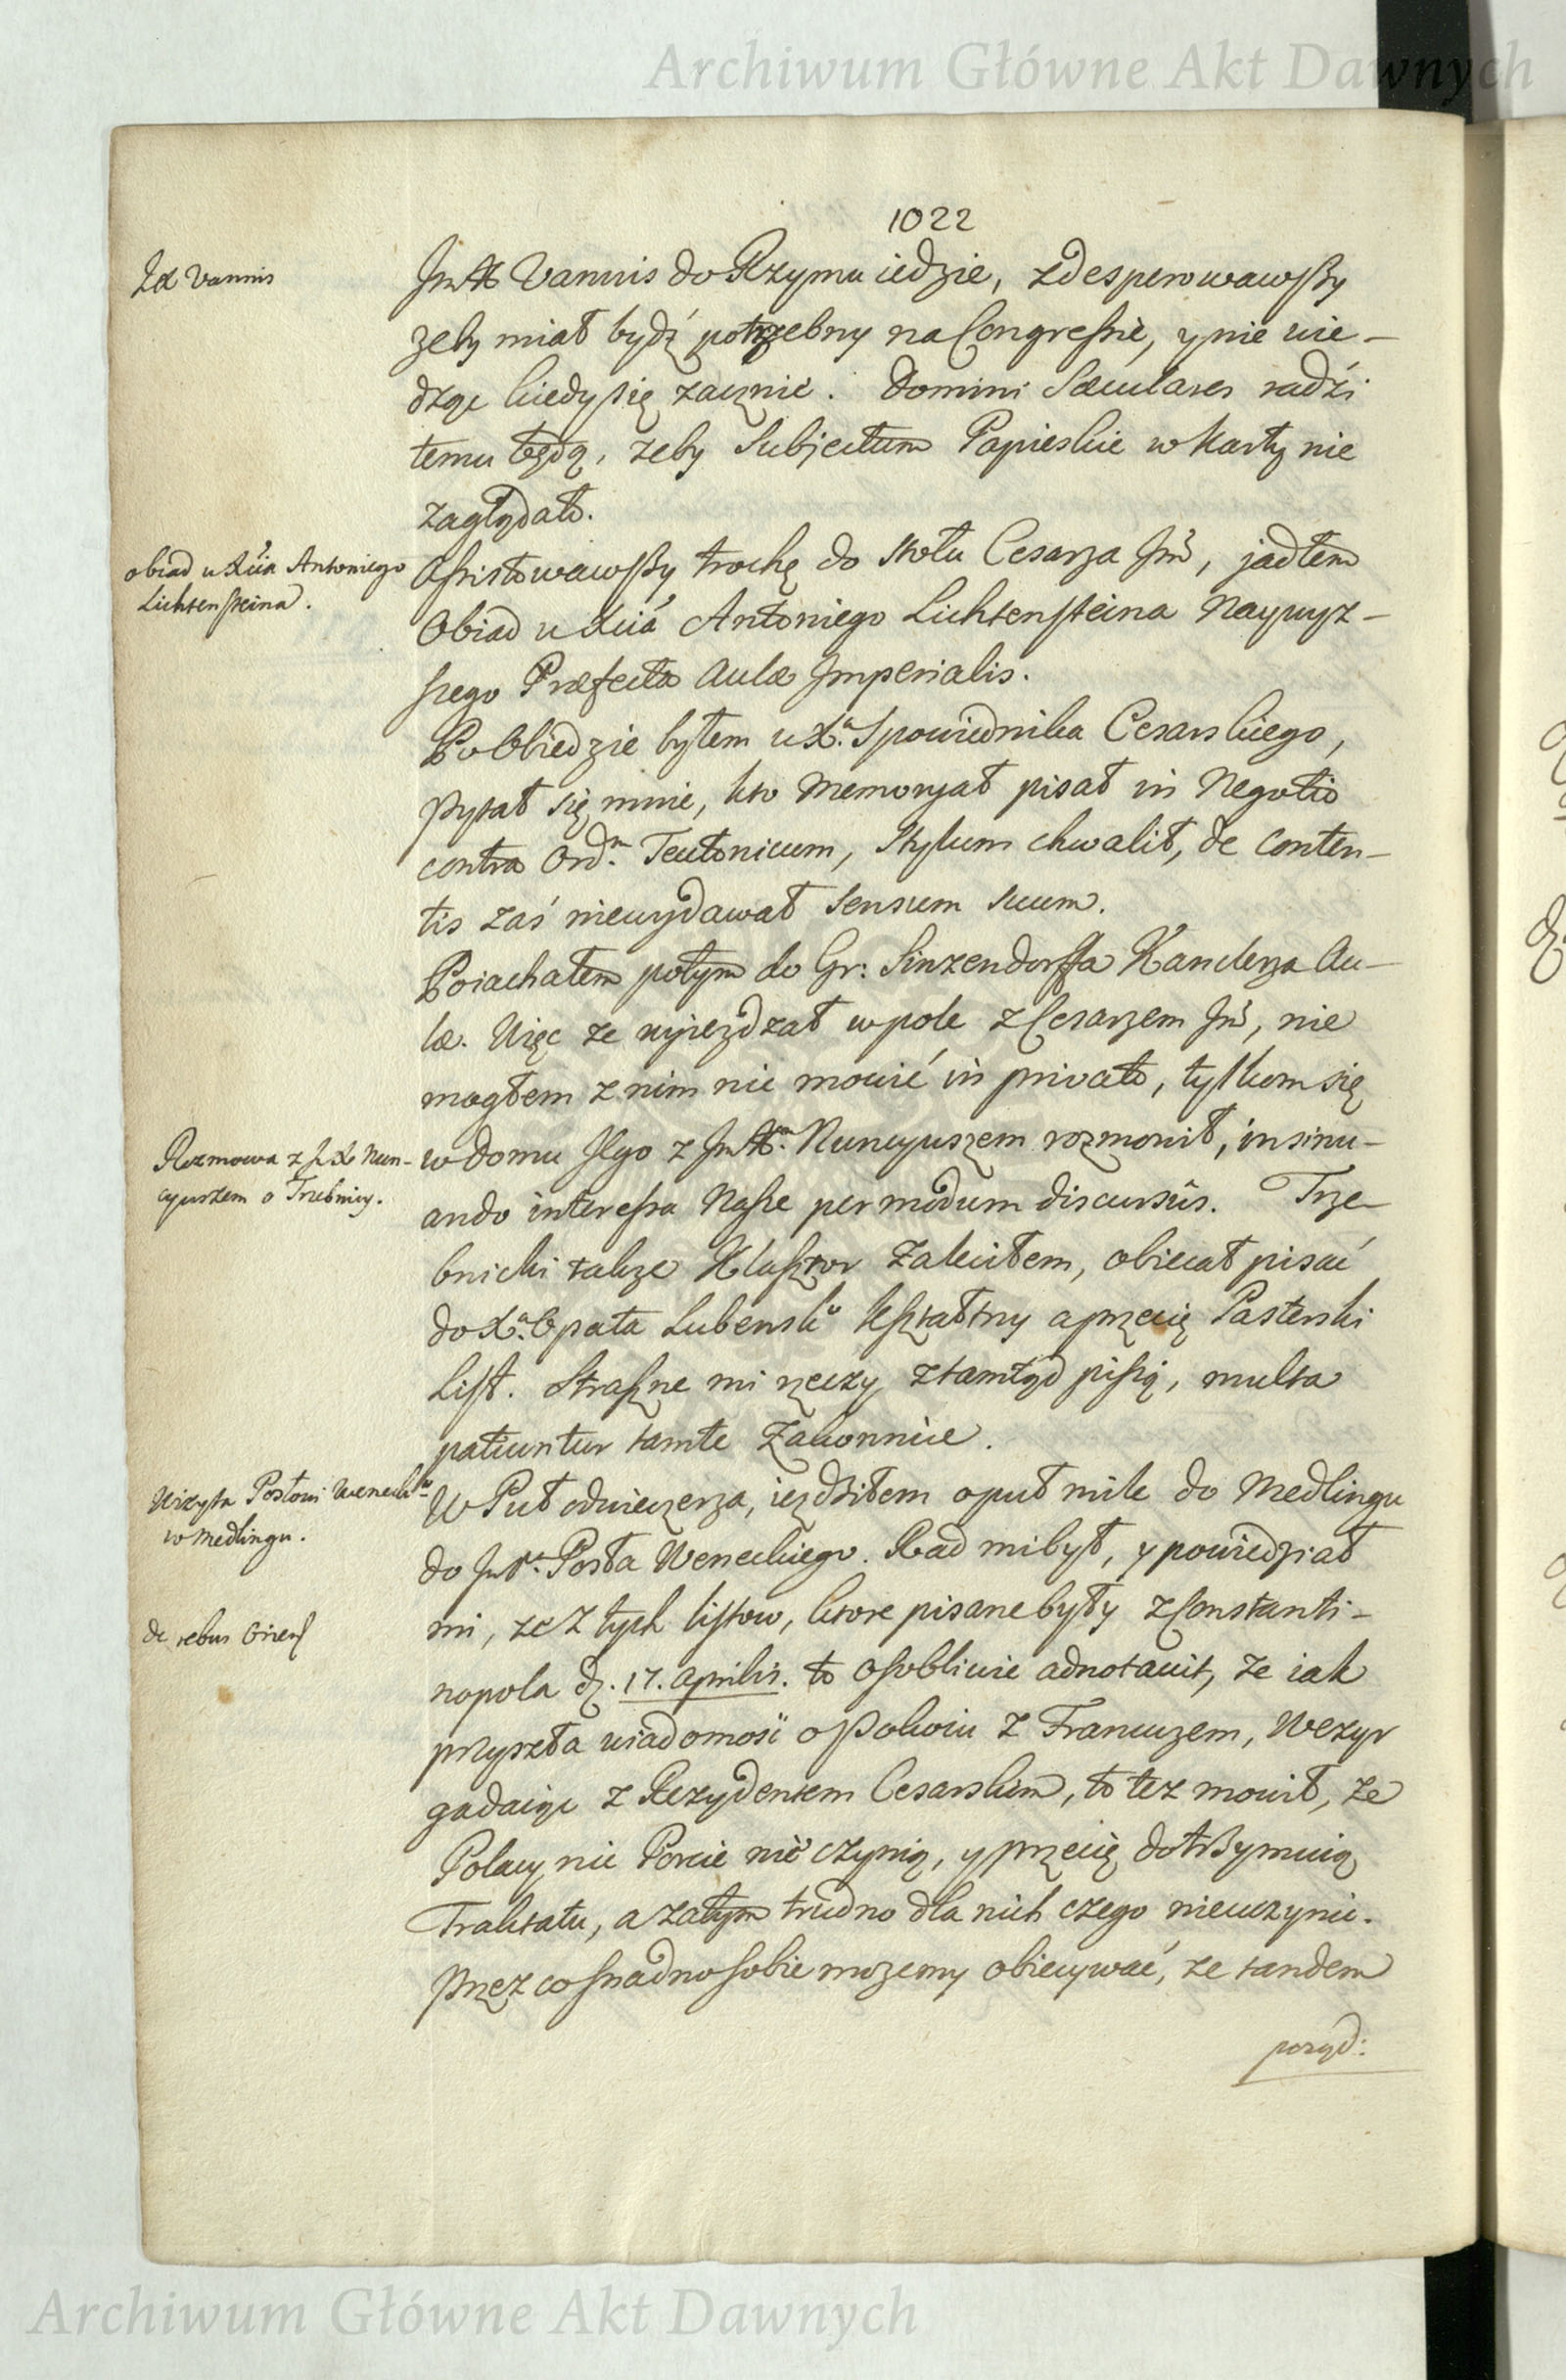 Archiwum Główne Akt Dawnych
1022
JX Vannis
JmX Vannis do Rzymu iedzie, zdesperowawszy
zeby miał bydź potrzebny na Congressie, y nie wie-
dząc kiedy się zacznie. Domini Sæculares radzi
temu będą, zeby Subjectum Papieskie w Karty nie
zaglądało.
obiad u Xcia Antoniego
Lichtensteina.
Assistowawszy trochę do stołu Cesarza Jmć, jadłem
Obiad u Xcia Antoniego Lichtensteina Naywyz-
szego Præfecta Aulæ Imperialis.
Po Obiedzie byłem u Xa Spowiednika Cesarskiego,
pytał się mnie, kto Memoryał pisał in Negotio
contra Ordm Teutonicum, Stylum chwalił, de conten-
tis zaś niewydawał sensum suum.
Poiachałem potym do Gr: Sinzendorffa Kanclerza Au-
læ. Więc ze wyiezdzał w pole z Cesarzem Jmć, nie
mogłem z nim nic mowić in privato, tylkom się
Rozmowa z JX Nun-
cyuszem o Trzebnicy.
w domu Jego z JmXm Nuncyuszem rozmowił, insinu-
ando interessa Nasze per modum discursûs. Trze-
bnicki takze Klasztor zaleciłem, obiecał pisać
do Xa Opata Lubensko kształtny a przecię Pasterski
List. Straszne mi rzeczy ztamtąd piszą, multa
patiuntur tamte Zakonnice.
Wizyta Posłowi Wenecko
w Medlingu.
W Puł odwieczerza, iezdziłem o puł mile do Medlingu
do JmPa Posła Weneckiego. Rad mi był, y powiedział
de rebus Orient
mi, ze z tych listow, ktore pisane były z Constanti-
nopola d. 17. Aprilis. to osobliwie adnotavit, ze iak
przyszła wiadomość o Pokoiu z Francuzem, Wezyr
gadaiąc z Rezydentem Cesarskim, to tez mowił, ze
Polacy nic Porcie nie czynią, y przecię dotrzymuią
Traktatu, a zatym trudno dla nich czego nieuczynić.
Przez co snadno sobie mozemy obiecywać, ze tandem
porząd:
Archiwum Główne Akt Dawnych